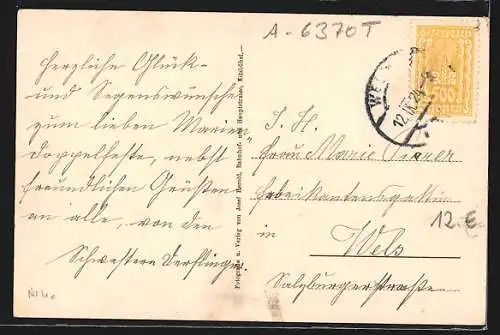 A-6370T
Herzliche Glück-
und Segenswünsche
zum lieben Marien
doppelfeste, nebst
freundlichen Grüßen
an alle, von den
Schwestern
Fotogr. u. Verlag von Josef Herold, Bahnhof- und Hauptstrasse, Kitzbühel.
ÖSTERREICH
500
WE
12.IX.24
I. H.
Frau Marie
Fabrikantensgattin
in
Wels
Salzburgerstraße
12 €